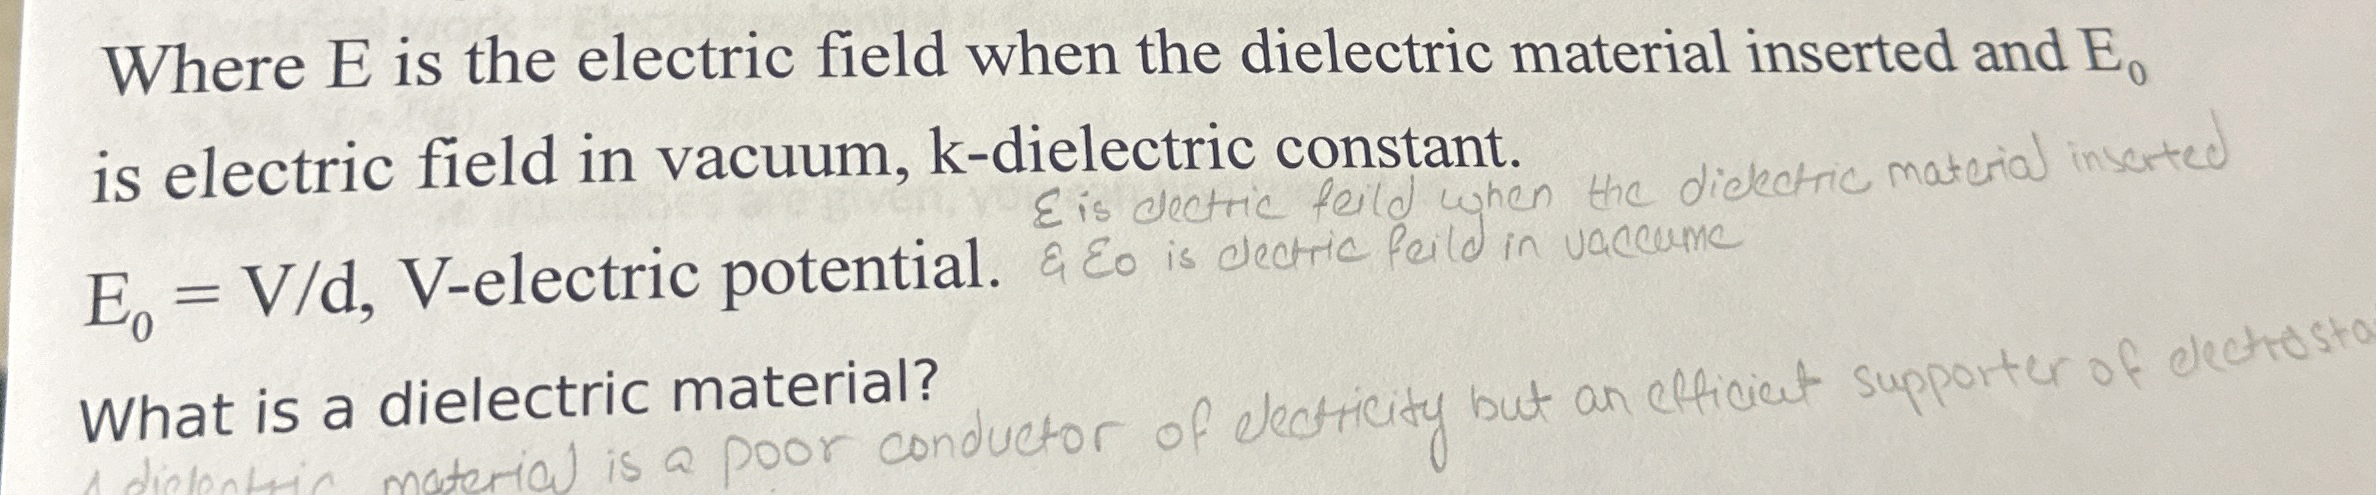 Where E is the electric field when the dielectric material inserted and E₀
is electric field in vacuum, k-dielectric constant.
Ɛ is electric feild when the dielectric material inserted
& Ɛo is electric feild in vaccume
E₀ = V/d, V-electric potential.
What is a dielectric material?
A dielectric material is a poor conductor of electricity but an efficient supporter of electrosta